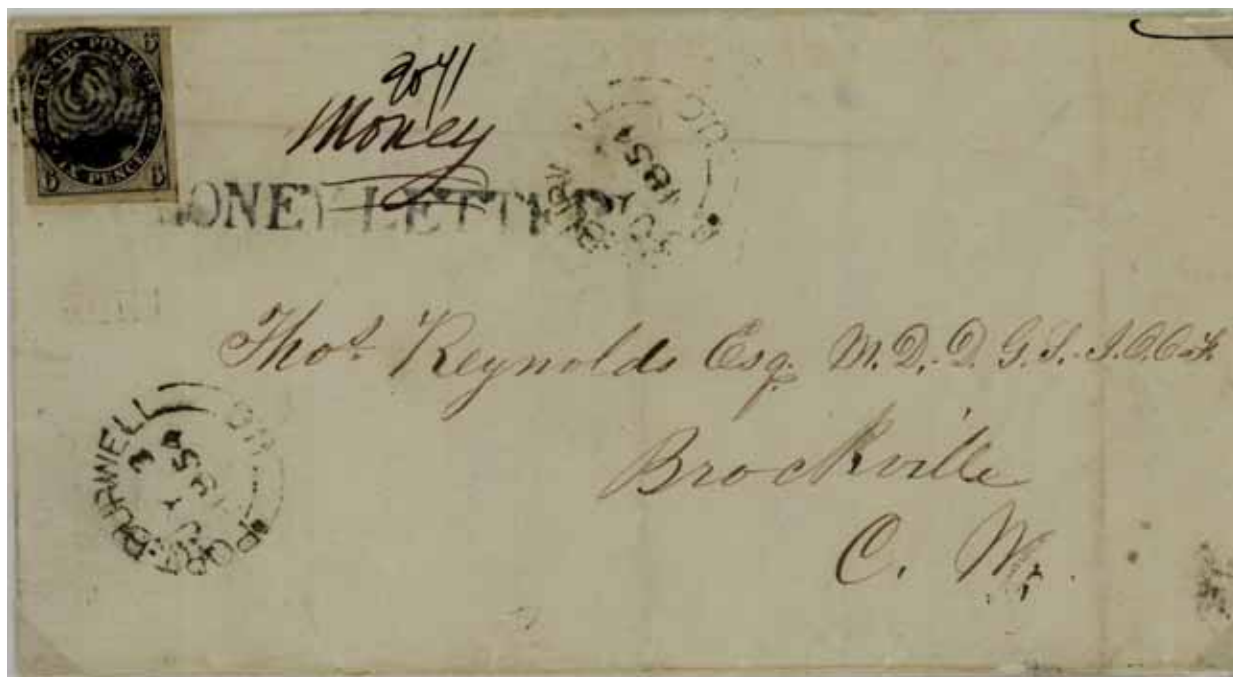 6 CANADA POSTAGE 6
SIX PENCE
6 6
Money
MONEY LETTER
UC
1854
Thos. Reynolds Esq. M.D. D.G.S. I.O.O.F.
Brockville
C. W.
PORT BURWELL
UC
3
1854